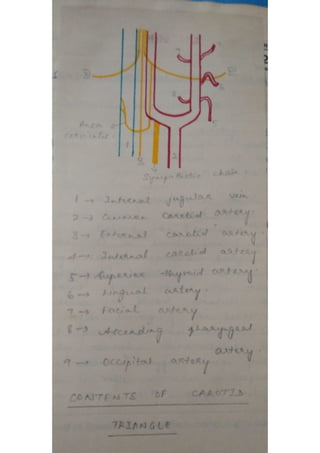 Ansa
cervicalis.
Sympathetic chain.
1 → Internal jugular vein
2 → Common carotid artery.
3 → External carotid artery
4 → Internal carotid artery
5 → Superior thyroid artery.
6 → Lingual artery.
7 → Facial artery
8 → Ascending pharyngeal
artery.
9 → Occipital artery
CONTENTS OF CAROTID
TRIANGLE